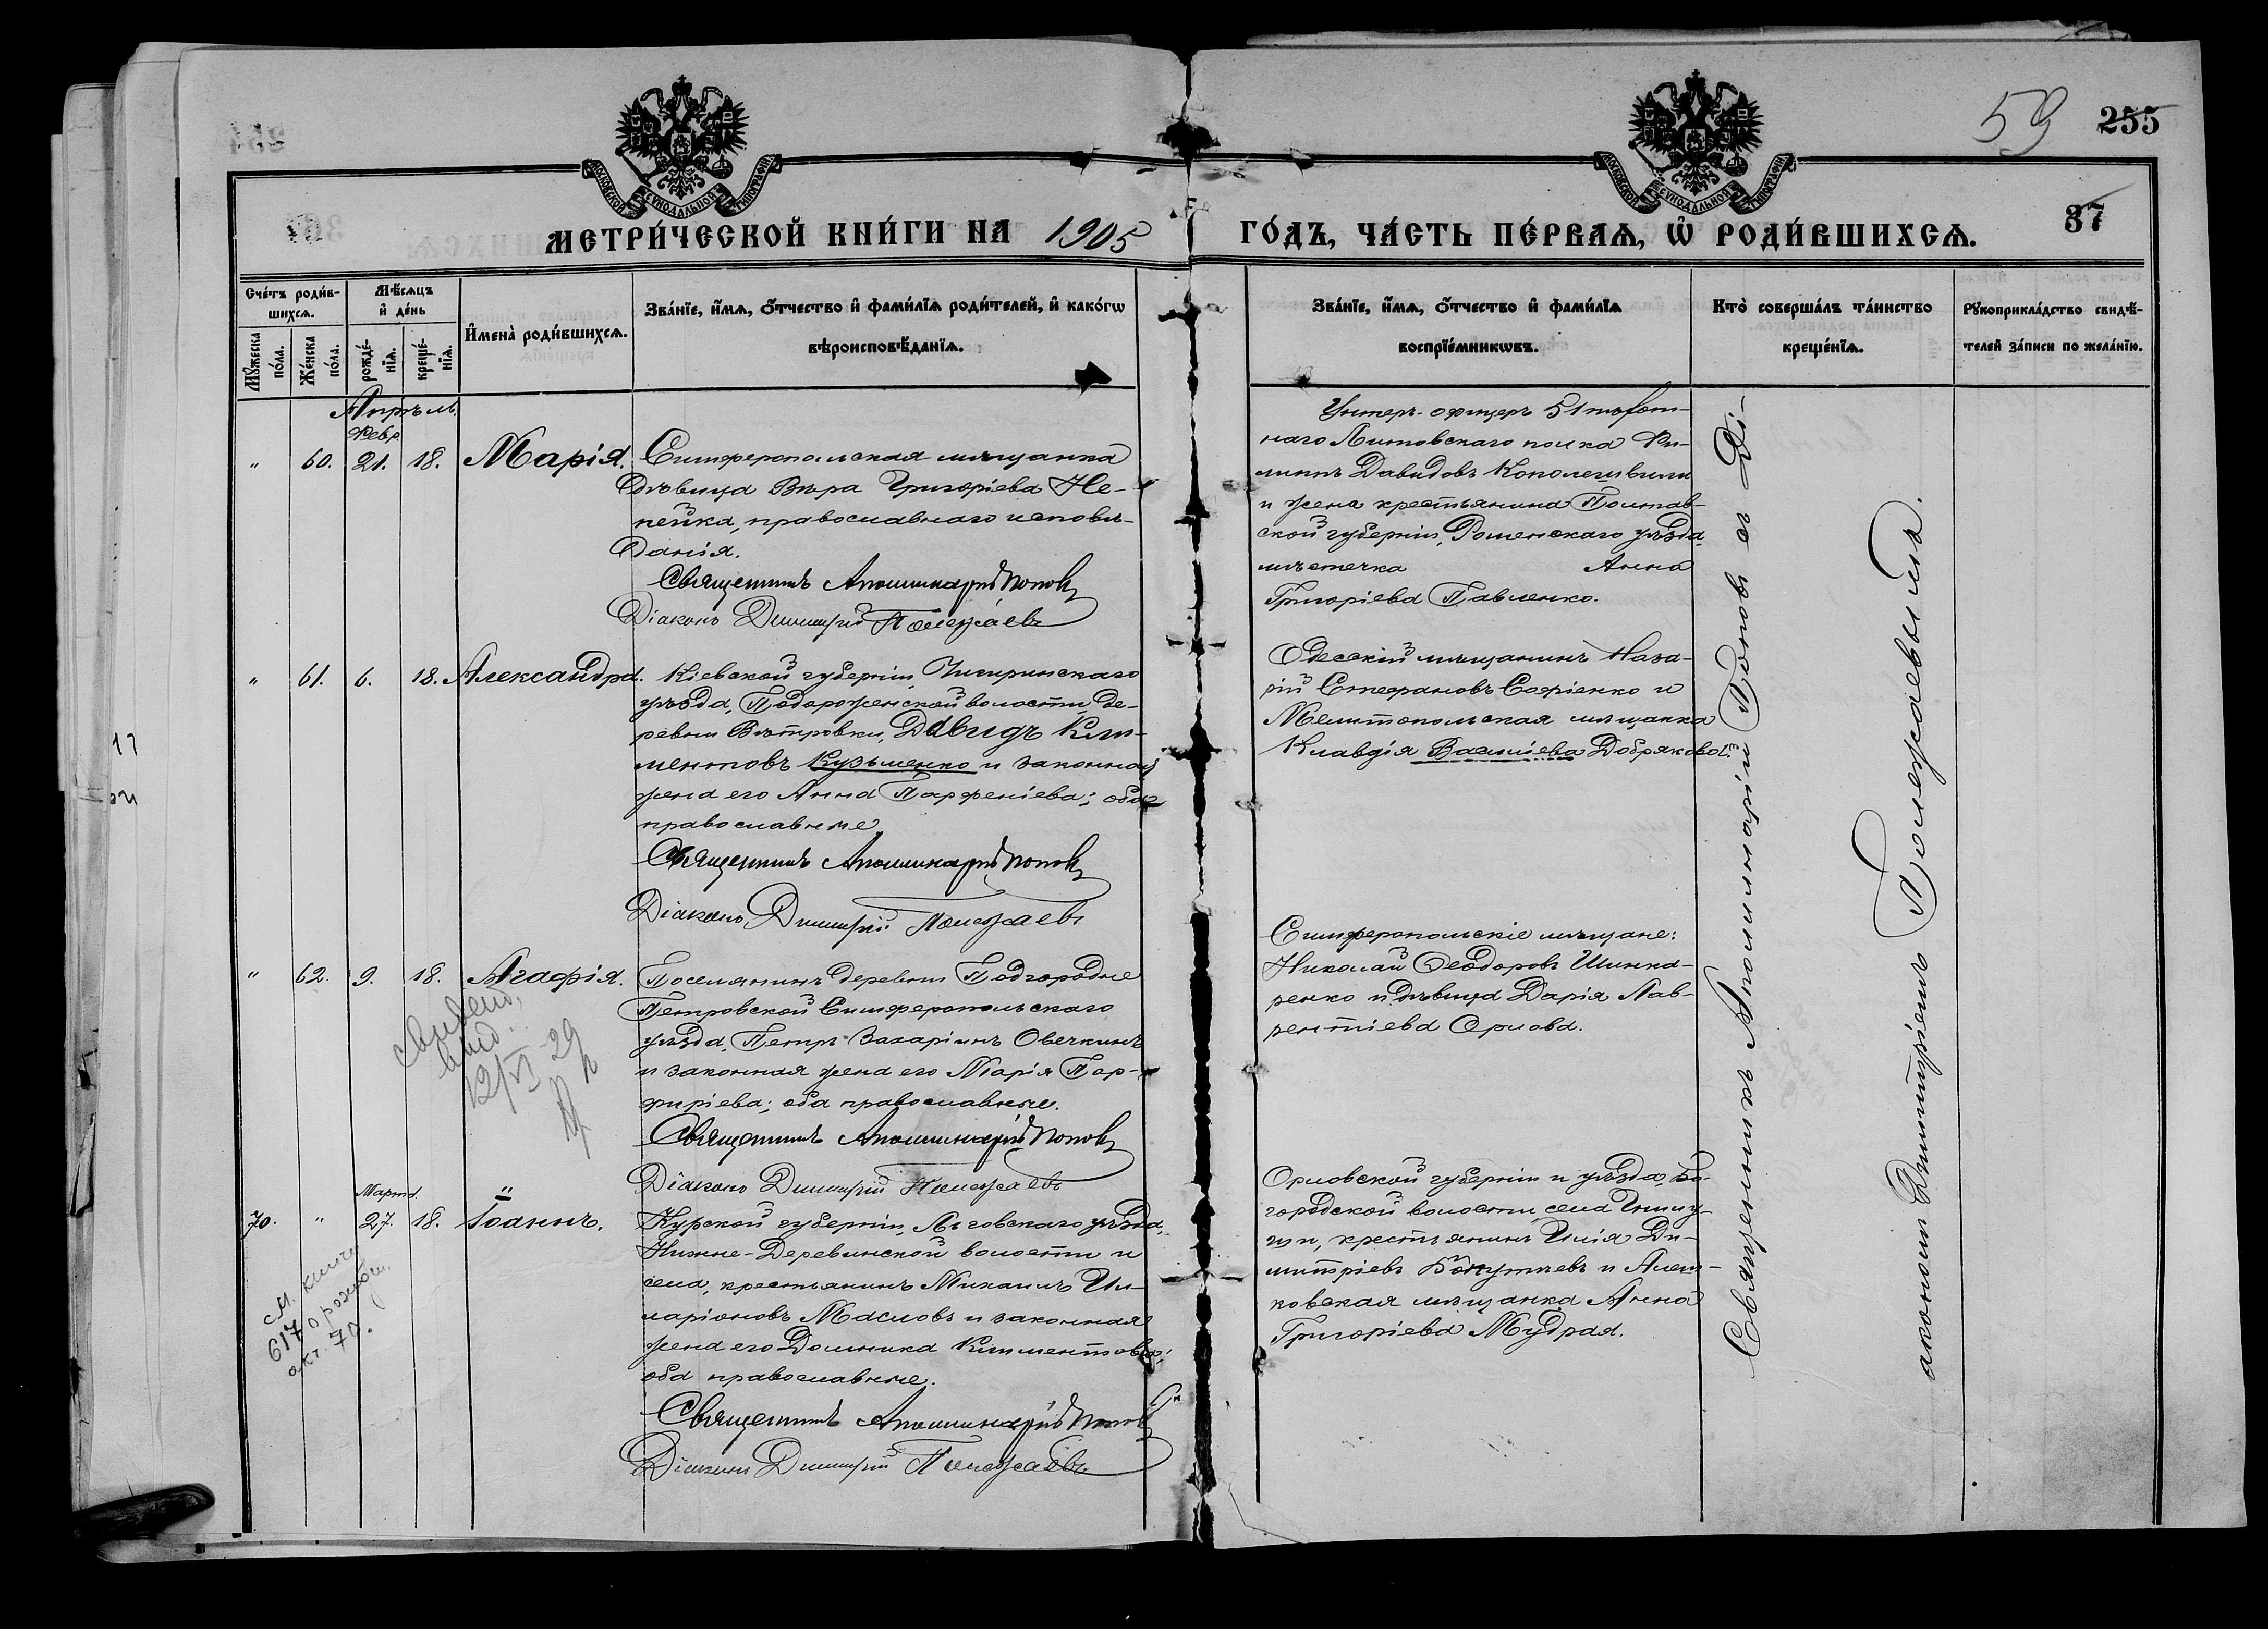 59 255
37
МОСКОВСКОЙ СѴНОДАЛЬНОЙ ТИПОГРАФІИ
МОСКОВСКОЙ СѴНОДАЛЬНОЙ ТИПОГРАФІИ
МЕТРИ́ЧЕСКОЙ КНИ́ГИ НА 1905 ГО́ДЪ, ЧА́СТЬ ПЕ́РВАѦ, Ѡ҆ РОДИ́ВШИХСѦ.
Сче́тъ роди́в-
шихсѧ.
Мꙋ́жеска по́ла.
Же́нска по́ла.
Мѣ́сѧцъ
и҆ де́нь
рожде́-
нїѧ.
креще́-
нїѧ.
И҆мена̀ роди́вшихсѧ.
Зва́нїе, и҆́мѧ, ѻ҆́тчество и҆ фами́лїѧ роди́телей, и҆ како́гѡ
вѣроисповѣ́данїѧ.
Зва́нїе, и҆́мѧ, ѻ҆́тчество и҆ фами́лїѧ
воспрїе́мникѡвъ.
Кто̀ соверша́лъ та́инство
креще́нїѧ.
Рꙋкоприкла́дство свидѣ́-
телей за́писи по жела́нїю.
Апрѣль.
Февр.
" 60. 21. 18. Марія.
Симферопольская мѣщанка
дѣвица Вѣра Григоріева Не-
пейка, православнаго исповѣ-
данія.
Священникъ Аполлинарій Поповъ
Діаконъ Димитрій Полежаевъ
Унтеръ-офицеръ 51 пѣхот-
наго Литовскаго полка Фи-
липпъ Давидовъ
и жена крестьянина Полтав-
ской губерніи, Роменскаго уѣзда,
мѣстечка Анна
Григоріева Павленко.
" 61. 6. 18. Александра.
Кіевской губерніи, Чигиринскаго
уѣзда, Подороженской волости, де-
ревни Вѣтровки, Давидъ Кли-
ментовъ Кузьменко и законная
жена его Анна Парфеніева; оба
православные
Священникъ Аполлинарій Поповъ
Діаконъ Димитрій Полежаевъ
Одесскій мѣщанинъ Наза-
рій Стефановъ Софіенко и
Мелитопольская мѣщанка
Клавдія Василіева Добрякова.
" 62. 9. 18. Агафія.
Поселянинъ деревни Подгородне
Петровской Симферопольскаго
уѣзда, Петръ Захаріинъ Овечкинъ
и законная жена его Марія Пор-
фиріева; оба православные.
Священникъ Аполлинарій Поповъ
Діаконъ Димитрій Полежаевъ
12/VI 29
Симферопольскіе мѣщане:
Николай Ѳеодоровъ Шинка-
ренко и дѣвица Дарія Лав-
рентіева Орлова.
Марта.
70. " 27. 18. Іоаннъ.
Курской губерніи, Льговскаго уѣзда,
Нижне-Деревинской волости и
села, крестьянинъ Михаилъ Ил-
ларіоновъ Масловъ и законная
жена его Домника Климентова;
оба православные.
Священникъ Аполлинарій Поповъ
Діаконъ Димитрій Полежаевъ
см. книгу
617 о рожден.
акт. 70.
Орловской губерніи и уѣзда, Бо-
городской волости, села
крестьянинъ Илія Ди-
митріевъ и Алеш-
ковская мѣщанка Анна
Григоріева Мудрая.
Священникъ Аполлинарій Поповъ съ Ді-
акономъ Димитріемъ Полежаевымъ.